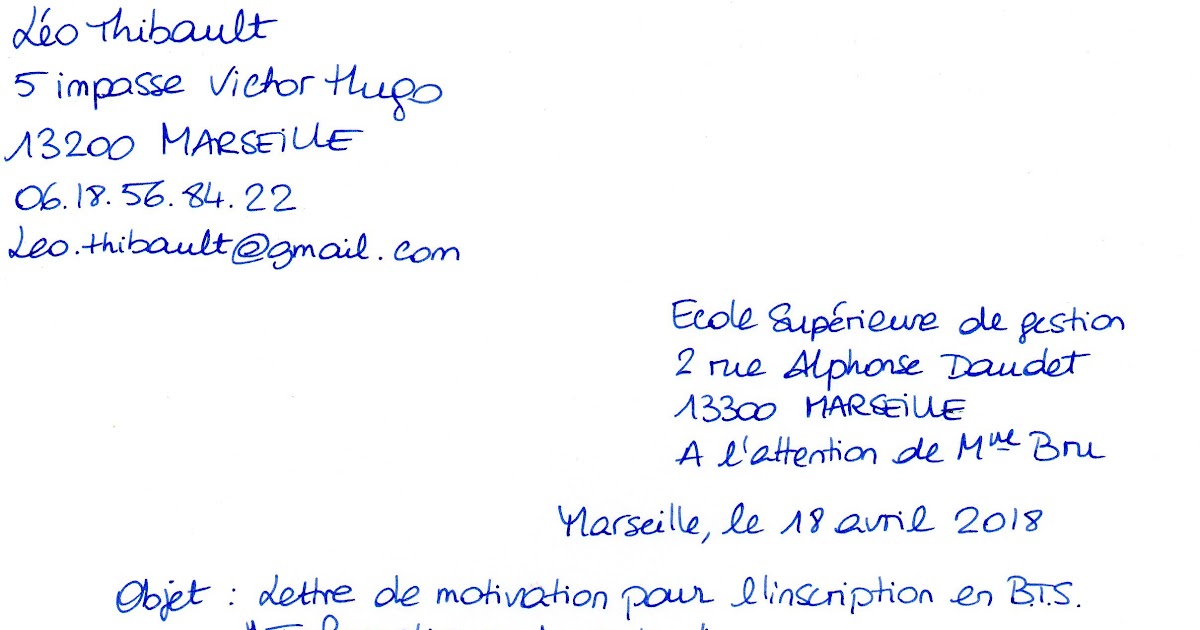 Léo Thibault
5 impasse Victor Hugo
13200 MARSEILLE
06.18.56.84.22
Leo.thibault@gmail.com
Ecole Supérieure de gestion
2 rue Alphonse Daudet
13300 MARSEILLE
A l'attention de Mme Bru
Marseille, le 18 avril 2018
Objet : Lettre de motivation pour l'inscription en B.T.S.